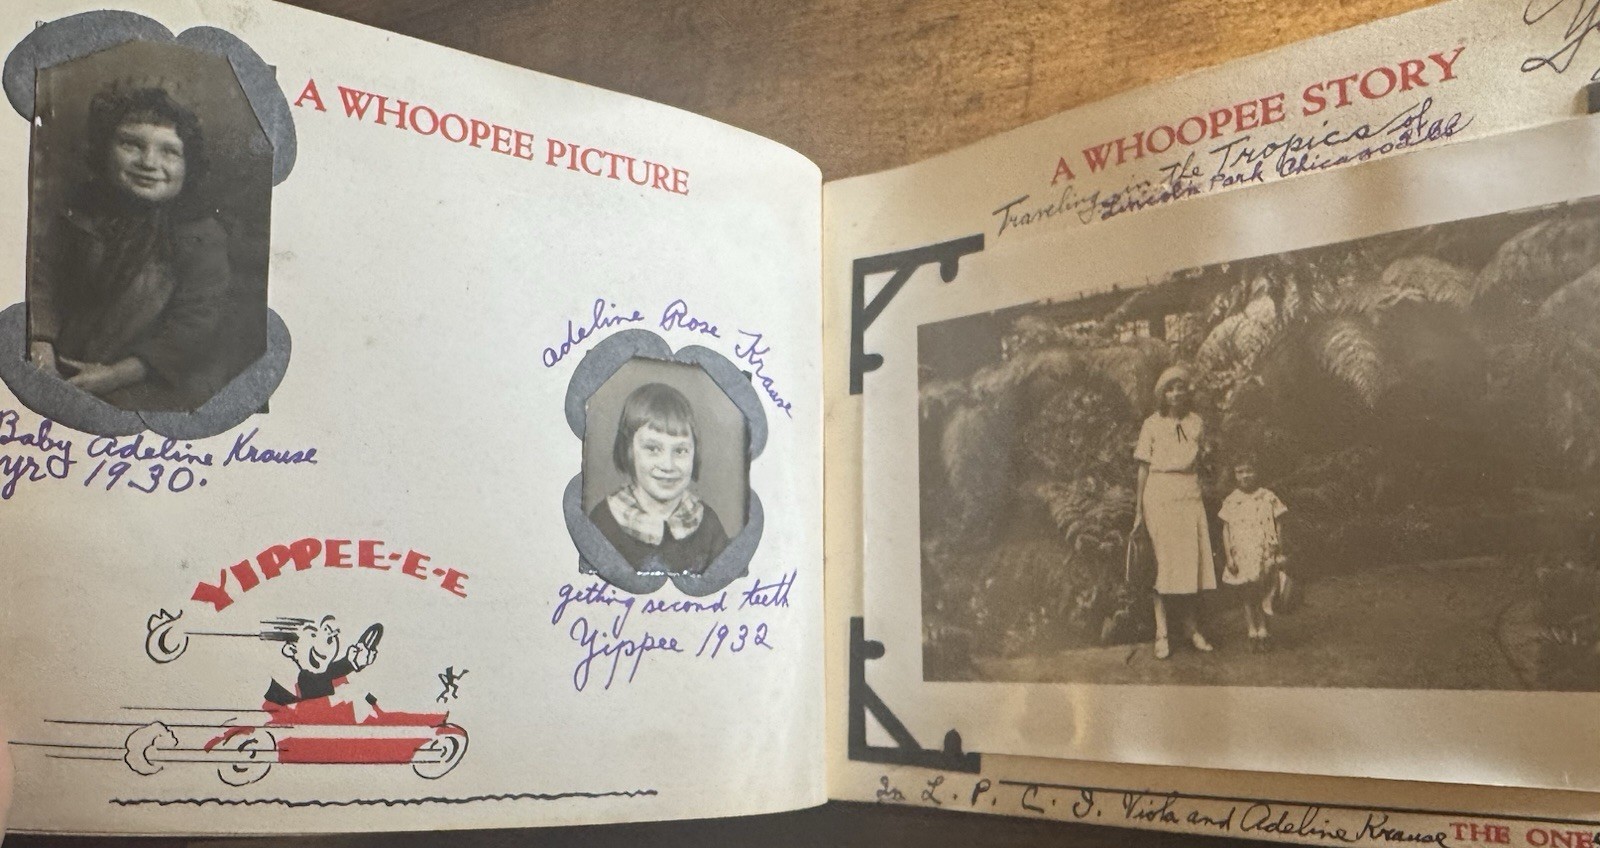 A WHOOPEE PICTURE
Baby Adeline Krause
yr 1930.
Adeline Rose Krause
getting second teeth
Yippee 1932
YIPPEE-E-E
A WHOOPEE STORY
Traveling in the Tropics of
Lincoln Park Chicago Ill
In L. P. C. I. Viola and Adeline Krause
THE ONE